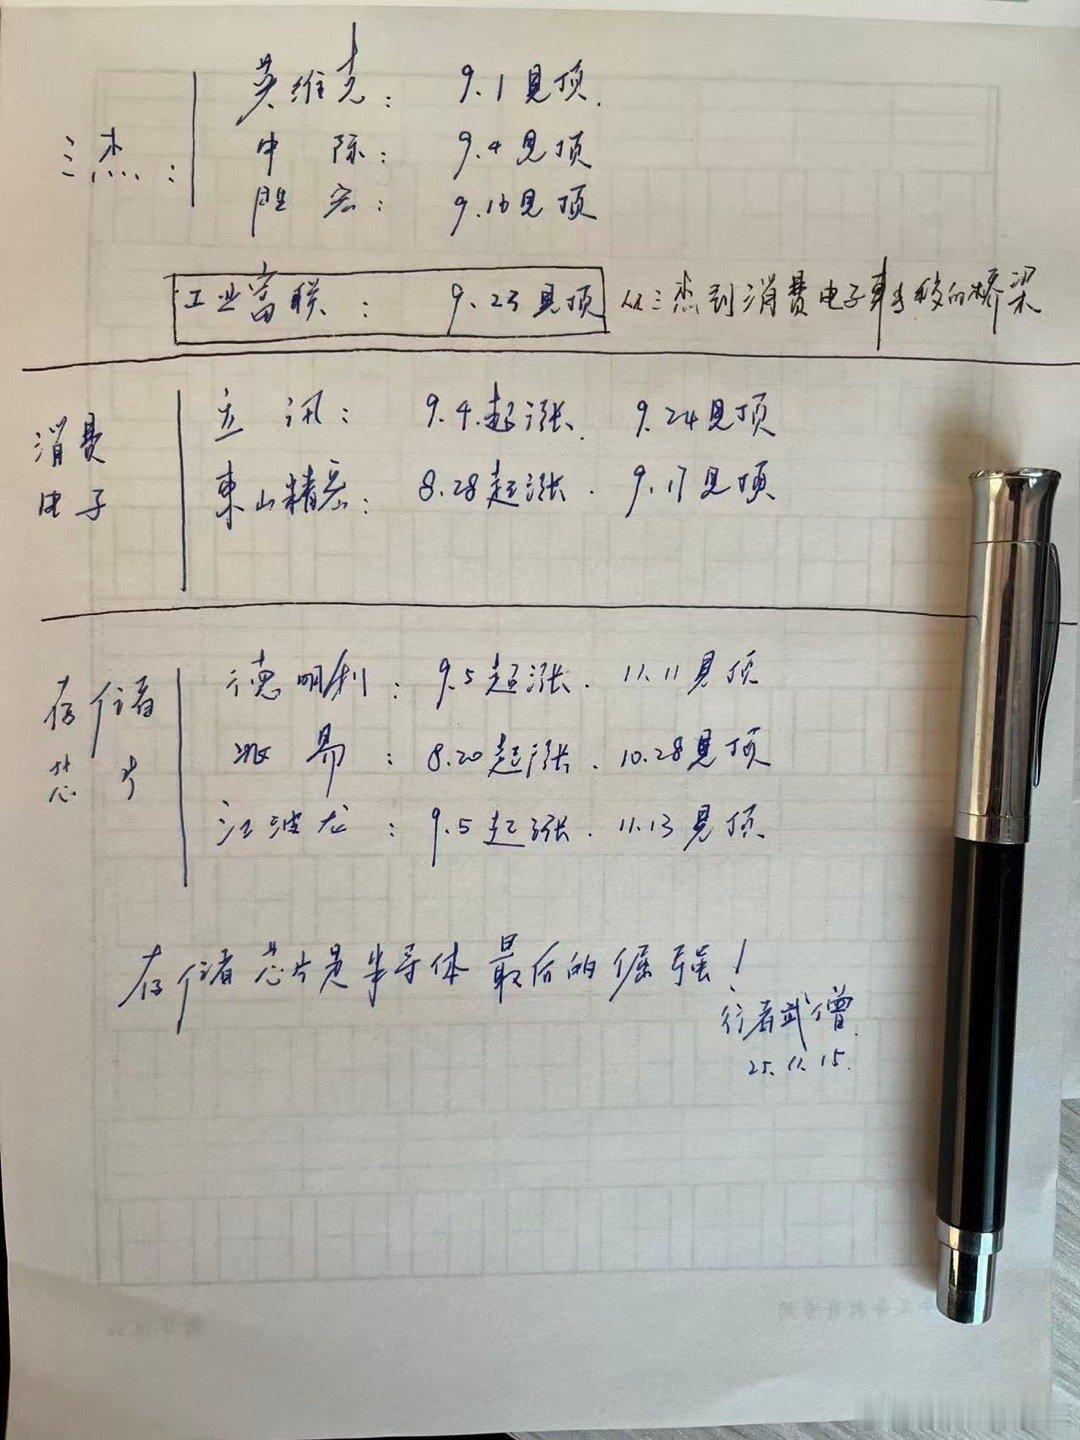 三杰：
英维克： 9.1见顶.
中 际： 9.4见顶
胜 宏： 9.16见顶
工业富联： 9.23见顶 从三杰到消费电子转移的桥梁
消费
电子
立 讯： 9.4.起涨. 9.24见顶
東山精密： 8.28起涨. 9.17见顶
存储
芯片
德明利： 9.5起涨. 11.11见顶
兆 易： 8.20起涨. 10.28见顶
江波龙： 9.5起涨. 11.13见顶.
存储芯片是半导体最后的倔强！
行者武僧.
25.11.15.